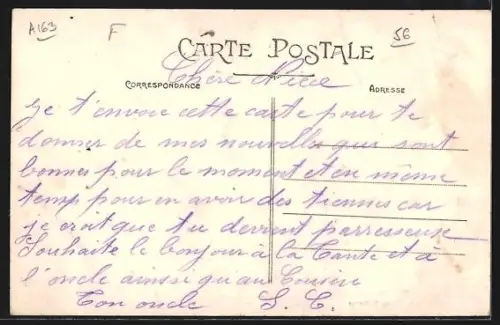 A163
F
56
CARTE POSTALE
Chère Nièce
CORRESPONDANCE
ADRESSE
Je t'envoie cette carte pour te
donner de mes nouvelles qui sont
bonnes pour le moment et en même
temp pour en avoir des tiennes car
je croit que tu devient parresseuse
Souhaite le bonjour à la Tante et à
l'oncle ainsi qu'au Cousin
Ton oncle L. C.